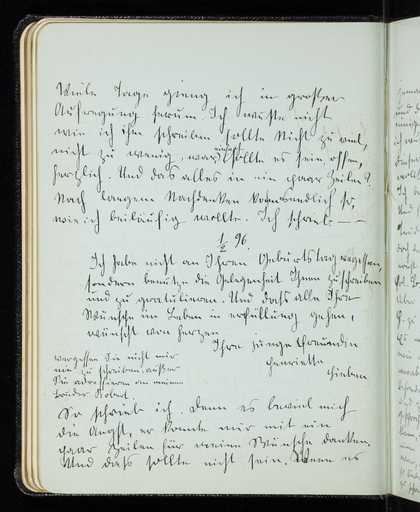 Viele Tage gieng ich in großer
Aufregung herum. Ich wusste nicht
wie ich ihm schreiben sollte Nicht zu viel,
nicht zu wenig, war sollte es sein offen,
herzlich. Und das alles in ein paar Zeilen?
Nach langem Nachdenken kam endlich so,
wie ich beiläufig wollte. Ich schrieb
96.
Ich habe nicht an Ihren Geburtstag vergessen,
sondern benütze die Gelegenheit Ihnen zu schreiben
und zu gratulieren. Und daß alle Ihre
Wünsche im Leben in erfüllung gehen,
wünscht von herzen
Ihre junge Freundin
Henriette
vergessen Sie nicht mir
zu schreiben.
Sie adressieren an meinen
bruder Robert.
So schrieb ich. Denn es befiel mich
die Angst, er könnte mir mit ein
paar Zeilen für meine Wünsche danken.
Und daß sollte nicht sein. Wenn er